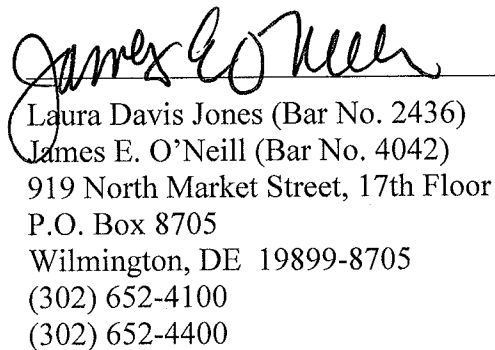 James E O'Neill
Laura Davis Jones (Bar No. 2436)
James E. O'Neill (Bar No. 4042)
919 North Market Street, 17th Floor
P.O. Box 8705
Wilmington, DE 19899-8705
(302) 652-4100
(302) 652-4400